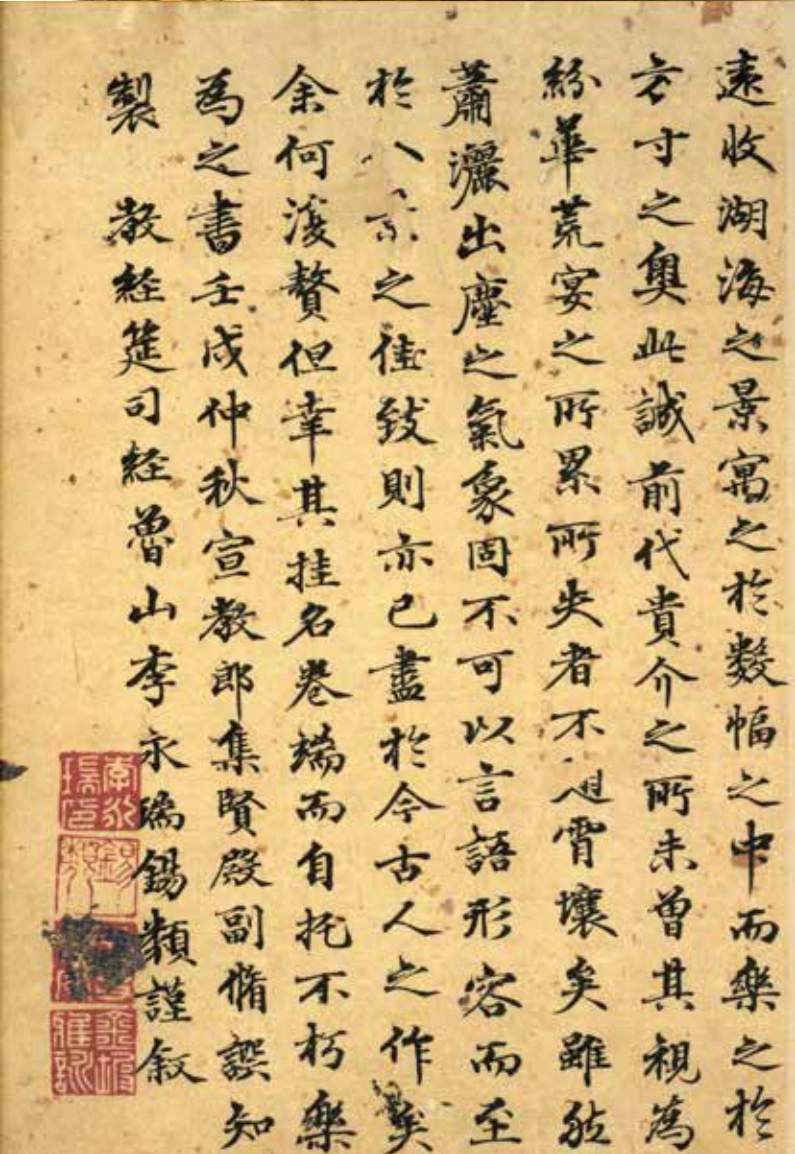 遠收湖海之景寓之於數幅之中而樂之於
方寸之奧此誠前代貴介之所未曾其視為
紛華荒宴之所累所失者不霄壤矣雖然
蕭灑出塵之氣象固不可以言語形容而至
於八景之佳致則亦已盡於今古人之作矣
余何復贅但幸其挂名卷端而自托不朽樂
為之書壬戌仲秋宣教郎集賢殿副脩譔知
製 教經筵司經魯山李永瑞錫類謹叙
李永瑞印
錫類